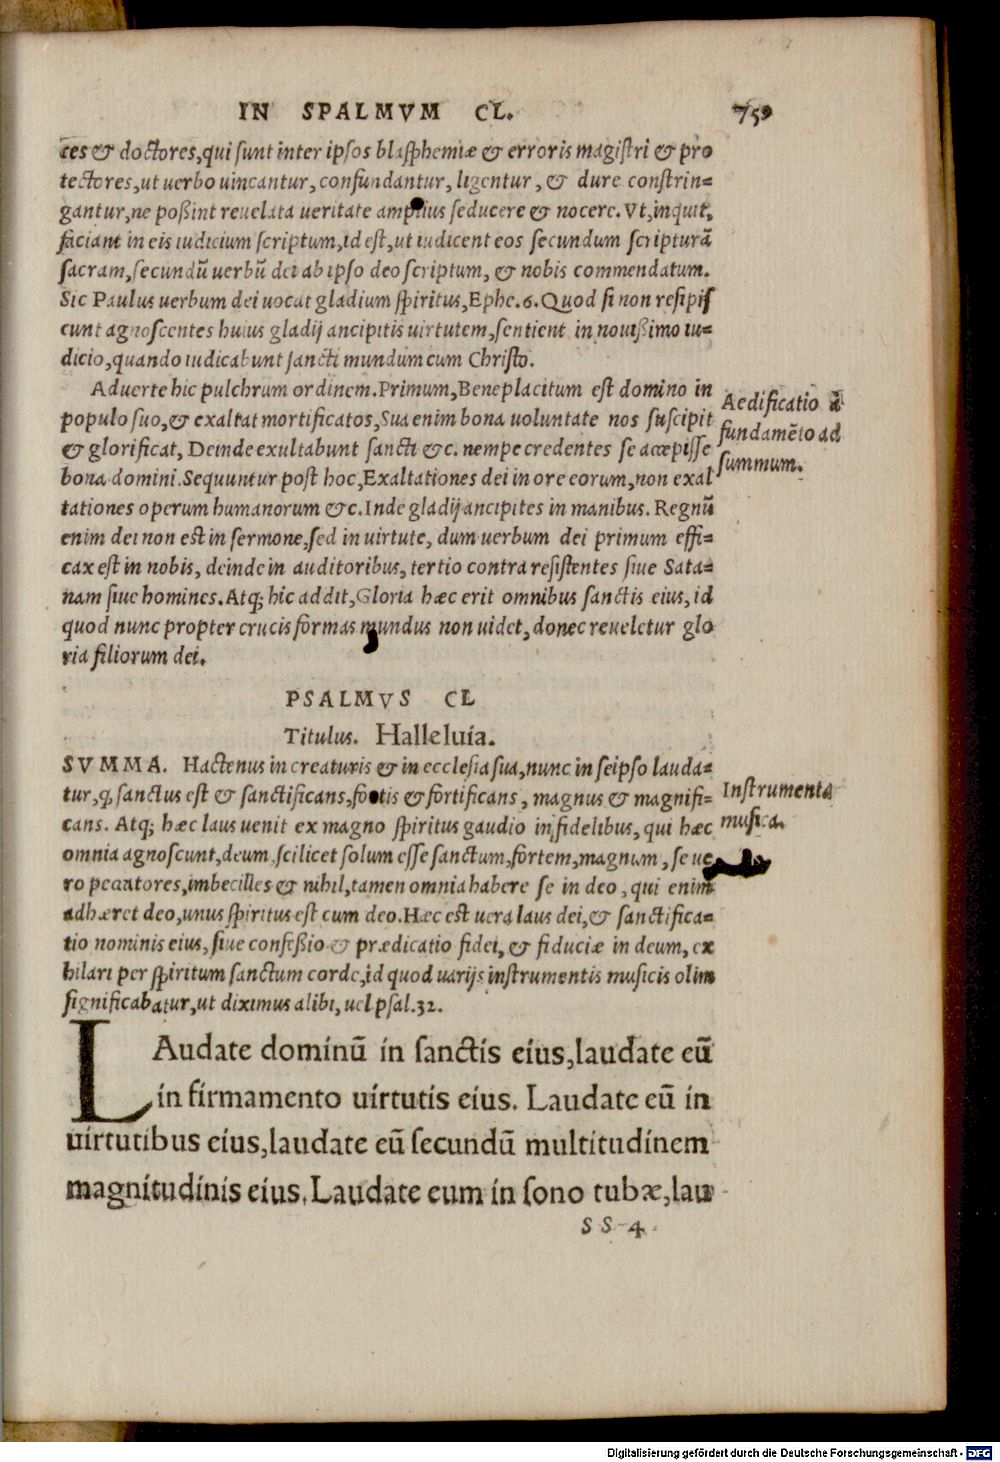 IN SPALMVM CL. 759
ces & doctores,qui sunt inter ipsos blasphemiæ & erroris magistri & pro
tectores,ut uerbo uincantur, confundantur, ligentur, & dure constrin=
gantur,ne poßint reuelata ueritate amplius seducere & nocere. Vt,inquit,
faciant in eis iudicium scriptum,id est,ut iudicent eos secundum scripturã
sacram,secundũ uerbũ dei ab ipso deo scriptum, & nobis commendatum.
Sic Paulus uerbum dei uocat gladium spiritus,Ephe.6. Quod si non resipis
cunt agnoscentes huius gladij ancipitis uirtutem,sentient in nouißimo iu=
dicio,quando iudicabunt sancti mundum cum Christo.
Aduerte hic pulchrum ordinem.Primum,Beneplacitum est domino in
populo suo,& exaltat mortificatos,Sua enim bona uoluntate nos suscipit
& glorificat, Deinde exultabunt sancti &c. nempe credentes se accepisse
bona domini.Sequuntur post hoc,Exaltationes dei in ore eorum,non exal
tationes operum humanorum &c.Inde gladij ancipites in manibus. Regnũ
enim dei non est in sermone,sed in uirtute, dum uerbum dei primum effi=
cax est in nobis, deinde in auditoribus, tertio contra resistentes siue Sata=
nam siue homines. Atq; hic addit, Gloria hæc erit omnibus sanctis eius, id
quod nunc propter crucis formas mundus non uidet, donec reueletur glo
ria filiorum dei.
Aedificatio à
fundamẽto ad
summum.
PSALMVS CL
Titulus. Halleluia.
SVMMA. Hactenus in creaturis & in ecclesia sua,nunc in seipso lauda=
tur,q̧ sanctus est & sanctificans,fortis & fortificans, magnus & magnifi=
cans. Atq; hæc laus uenit ex magno spiritus gaudio in fidelibus, qui hæc
omnia agnoscunt,deum scilicet solum esse sanctum,fortem,magnum, se ue
ro peccatores,imbecilles & nihil,tamen omnia habere se in deo, qui enim
adhæret deo,unus spiritus est cum deo.Hæc est uera laus dei,& sanctifica=
tio nominis eius, siue confeßio & prædicatio fidei, & fiduciæ in deum, ex
hilari per spiritum sanctum corde,id quod uarijs instrumentis musicis olim
significabatur,ut diximus alibi, uel psal.32.
Instrumenta
musica.
LAudate dominũ in sanctis eius,laudate eũ
in firmamento uirtutis eius. Laudate eũ in
uirtutibus eius,laudate eũ secundũ multitudinem
magnitudinis eius. Laudate eum in sono tubæ,lau
SS 4
Digitalisierung gefördert durch die Deutsche Forschungsgemeinschaft - DFG